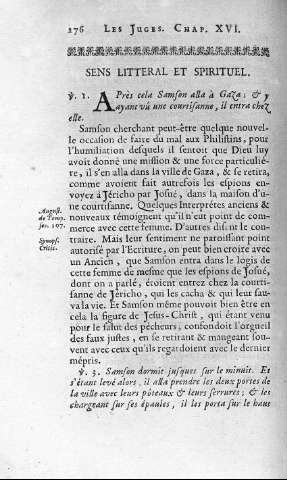 176 LES JUGES. CHAP. XVI.
SENS LITTERAL ET SPIRITUEL.
℣. 1. APrès cela Samson alla à Gaza: & y
ayant vû une courtisanne, il entra chez
elle.
Samson cherchant peut-être quelque nouvel-
le occasion de faire du mal aux Philistins, pour
l'humiliation desquels il sentoit que Dieu luy
avoit donné une mission & une force particulié-
re, il s'en alla dans la ville de Gaza, & se retira,
comme avoient fait autrefois les espions en-
voyez à Jéricho par Josué, dans la maison d'u-
ne courtisanne. Quelques Interprétes anciens &
nouveaux témoignent qu'il n'eut point de com-
merce avec cette femme. D'autres disent le con-
traire. Mais leur sentiment ne paroissant point
autorisé par l'Ecriture, on peut bien croire avec
un Ancien, que Samson entra dans le logis de
cette femme de mesme que les espions de Josué,
dont on a parlé, étoient entrez chez la courti-
sanne de Jéricho, qui les cacha & qui leur sau-
va la vie. Et Samson même pouvoit bien être en
cela la figure de Jesus-Christ, qui étant venu
pour le salut des pécheurs, confondoit l'orgueil
des faux justes, en se retirant & mangeant sou-
vent avec ceux qu'ils regardoient avec le dernier
mépris.
℣. 3. Samson dormit jusques sur le minuit. Et
s'étant levé alors, il alla prendre les deux portes de
la ville avec leurs pôteaux & leurs serrures; & les
chargeant sur ses épaules, il les porta sur le haut
August.
de Temp.
ser. 107.
Synops.
Critic.